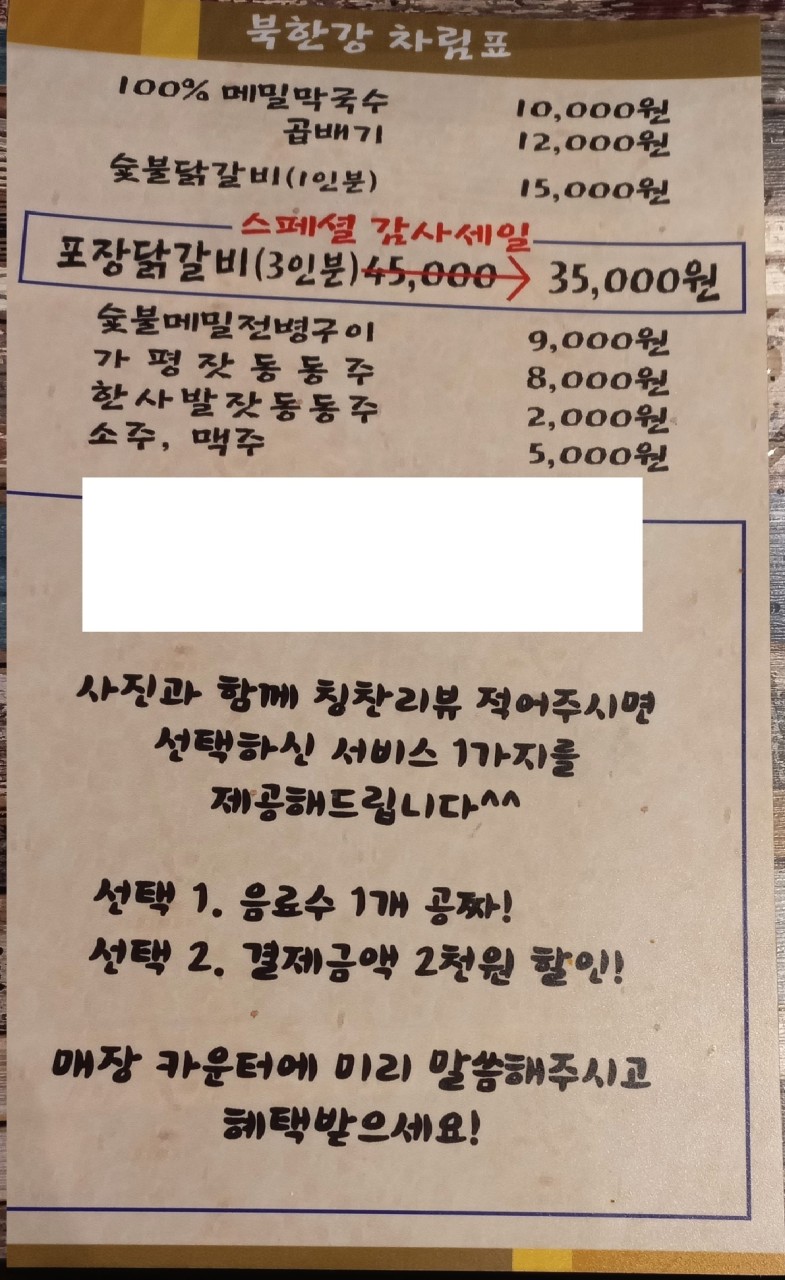 북한강 차림표
100% 메밀막국수 10,000원
곱배기 12,000원
숯불닭갈비(1인분) 15,000원
스페셜 감사세일
포장닭갈비(3인분) 45,000 → 35,000원
숯불메밀전병구이 9,000원
가평잣동동주 8,000원
한사발잣동동주 2,000원
소주, 맥주 5,000원
사진과 함께 칭찬리뷰 적어주시면
선택하신 서비스 1가지를
제공해드립니다^^
선택 1. 음료수 1개 공짜!
선택 2. 결제금액 2천원 할인!
매장 카운터에 미리 말씀해주시고
혜택받으세요!